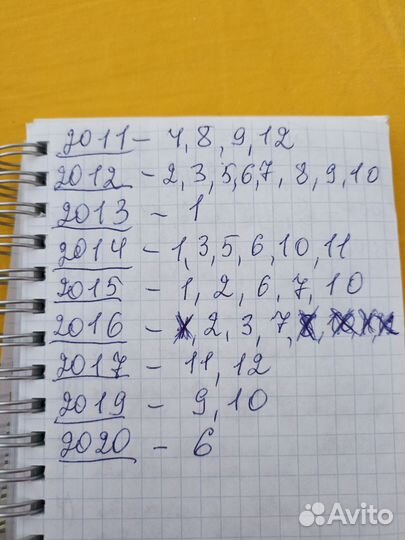 2011 - 4, 8, 9, 12
2012 - 2, 3, 5, 6, 7, 8, 9, 10
2013 - 1
2014 - 1, 3, 5, 6, 10, 11
2015 - 1, 2, 6, 7, 10
2016 - 2, 3, 7,
2017 - 11, 12
2019 - 9, 10
2020 - 6
Avito